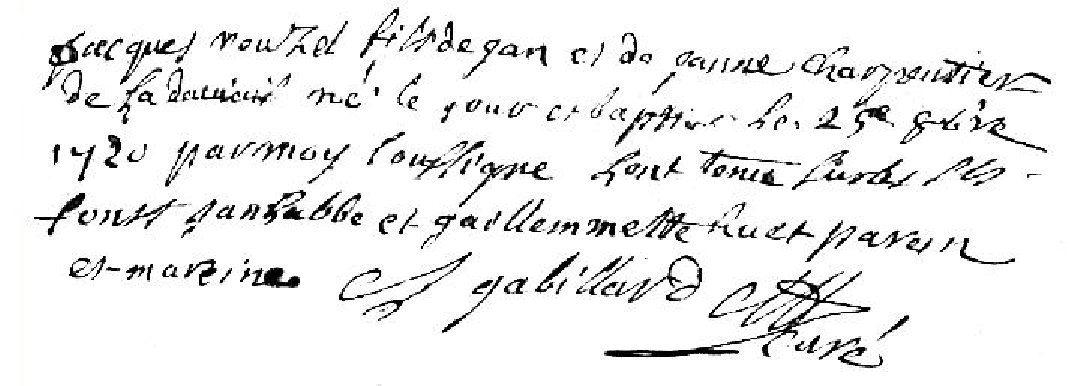 Jacques nouzel fils de gan et de janne charpentier
de la né le jour et baptise le 25e 8bre
1720 par moy soussigne hont tenu sur les SS
fonts jan labbe et guillemmette huet parein
et mareine S gabillard
curé